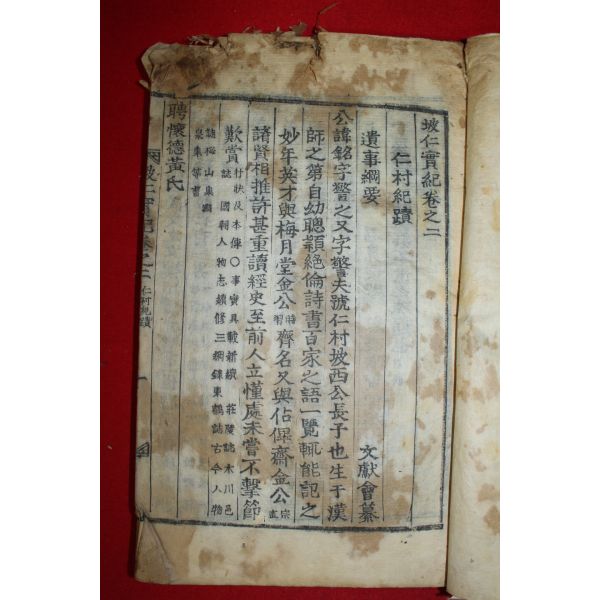 坡仁實紀卷之二
仁村紀蹟
遺事綱要 文獻會纂
公諱銘字警之又字警夫號仁村坡西公長子也生于漢
師之第自幼聰穎絶倫詩書百家之語一覽輒能記之
妙年英才與梅月堂金公時習齊名又與佔俾齋金公宗直
諸賢相推許甚重讀經史至前人立慬處未嘗不擊節
歎賞行狀及本傳○事實具載新續莊陵誌木川邑
誌國朝人物志續修三綱錄東鶴誌古今人物
誌梅山集
聘懷德黃氏
坡仁實紀卷之二 仁村紀蹟 一